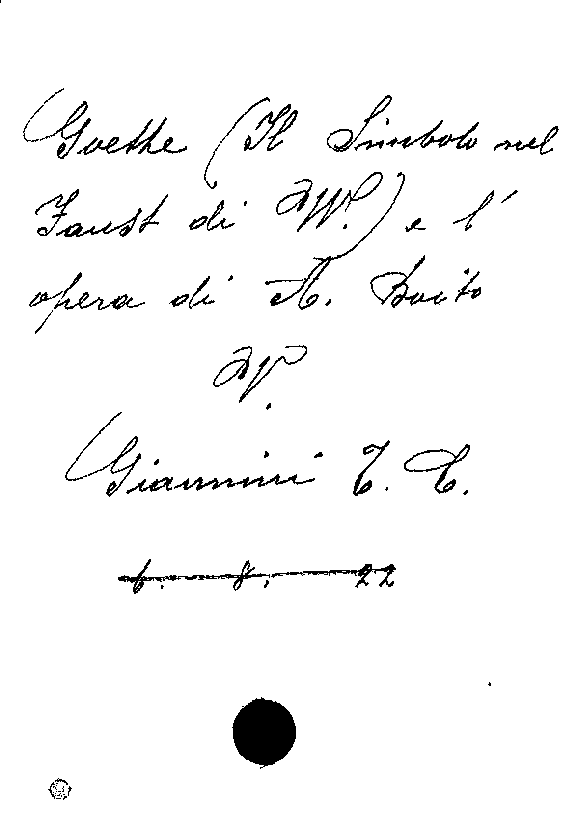 Goethe (Il Simbolo nel
Faust di W.) e l'
opera di A. Boito
V.
Giannini T. C.
6. 8. 22